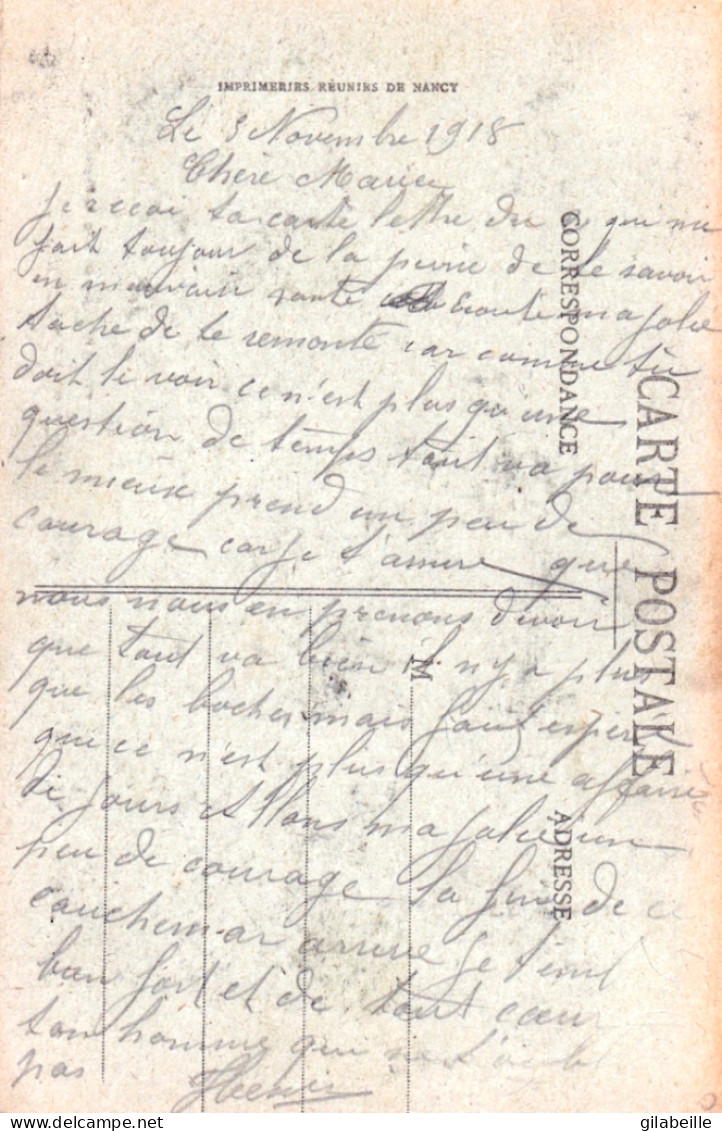 IMPRIMERIES RÉUNIES DE NANCY
Le 3 Novembre 1918
Chère Marie
Je recoi ta carte lettre du qui me
fait toujour de la peine de te savoir
en mauvaise santé Ecoute ma jolie
tache de te remonté car comme tu
doit le voir ce n'est plus qu'une
question de temps tout va pour
le mieux prend un peu de
courage car je t'assure que
nous nous en prenons devoir
que tout va bien il n'y a plus
que les boches mais faut esperé
que ce n'est plus qu'une affaire
de jours Allons ma jolie un
peu de courage la fin de ce
cauchemar arrive je t'embr
bien fort et de tout cœur
ton homme qui ne t'oubl
pas
CORRESPONDANCE
CARTE POSTALE
M
ADRESSE
delcampe.net
gilabeille